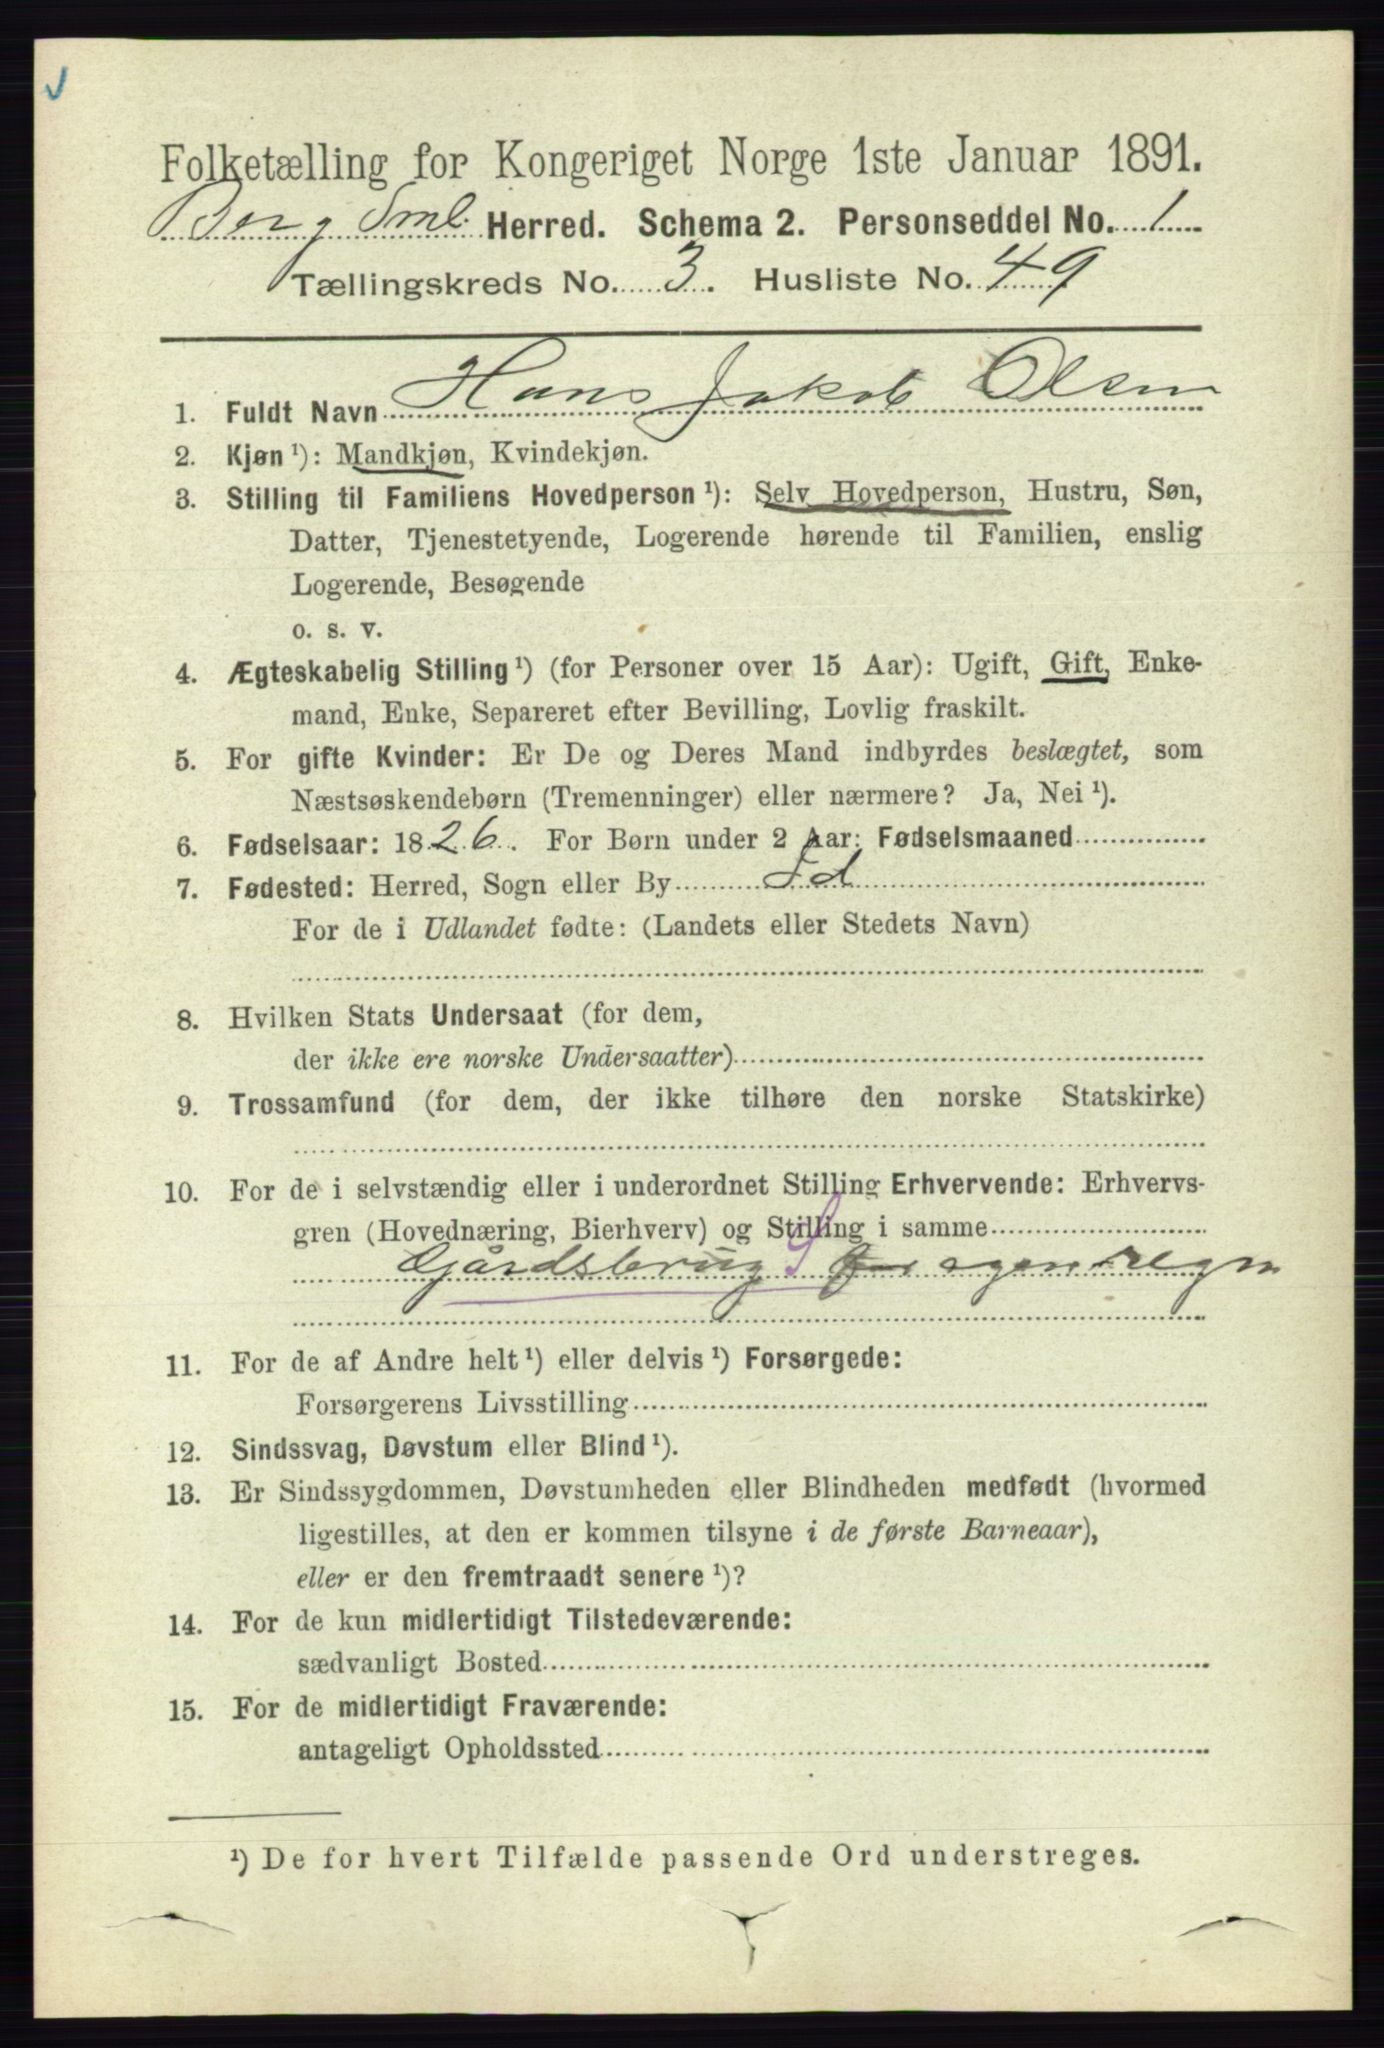 Folketælling for Kongeriget Norge 1ste Januar 1891.
Berg Sml. Herred. Schema 2. Personseddel No. 1
Tællingskreds No. 3. Husliste No. 49
1. Fuldt Navn Hans Jakob Olsen
2. Kjøn ¹): Mandkjøn, Kvindekjøn.
3. Stilling til Familiens Hovedperson ¹): Selv Hovedperson, Hustru, Søn,
Datter, Tjenestetyende, Logerende hørende til Familien, enslig
Logerende, Besøgende
o. s. v.
4. Ægteskabelig Stilling ¹) (for Personer over 15 Aar): Ugift, Gift, Enke-
mand, Enke, Separeret efter Bevilling, Lovlig fraskilt.
5. For gifte Kvinder: Er De og Deres Mand indbyrdes beslægtet, som
Næstsøskendebørn (Tremenninger) eller nærmere? Ja, Nei ¹).
6. Fødselsaar: 1826. For Børn under 2 Aar: Fødselsmaaned
7. Fødested: Herred, Sogn eller By Id
For de i Udlandet fødte: (Landets eller Stedets Navn)
8. Hvilken Stats Undersaat (for dem,
der ikke ere norske Undersaatter)
9. Trossamfund (for dem, der ikke tilhøre den norske Statskirke)
10. For de i selvstændig eller i underordnet Stilling Erhvervende: Erhvervs-
gren (Hovednæring, Bierhverv) og Stilling i samme
Gårdsbrug S for egen regn
11. For de af Andre helt ¹) eller delvis ¹) Forsørgede:
Forsørgerens Livsstilling
12. Sindssvag, Døvstum eller Blind ¹).
13. Er Sindssygdommen, Døvstumheden eller Blindheden medfødt (hvormed
ligestilles, at den er kommen tilsyne i de første Barneaar),
eller er den fremtraadt senere ¹)?
14. For de kun midlertidigt Tilstedeværende:
sædvanligt Bosted
15. For de midlertidigt Fraværende:
antageligt Opholdssted
¹) De for hvert Tilfælde passende Ord understreges.